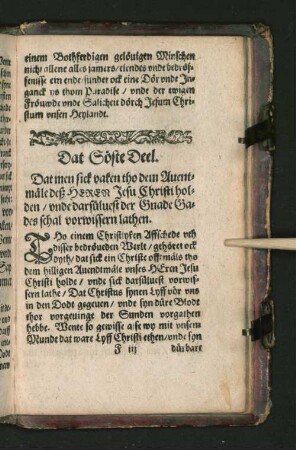 einem Bothferdigen gelöuigen Minschen
nicht allene alles jamers / elendes vnde bedröff-
fenisse ein ende sunder ock eine Dör vnde In-
ganck ys thom Paradise / vnde der ewigen
Fröuwde vnde Salicheit dörch Jesum Chri-
stum vnsen Heylandt.
Dat Söste Deel.
Dat men sick vaken tho dem Auent-
mäle deß HEREN Jesu Christi hol-
den / vnde darsüluest der Gnade Ga-
des schal vorwissern lathen.
THo einem Christlyken Affschede vth
disser bedröueden Werlt / gehöret ock
Döth / dat sick ein Christe offtmals tho
dem hilligen Auendtmäle vnses HEren Jesu
Christi holde / vnde sick darsüluest vorwis-
sern lathe / Dat Christus synen Lyff vör vns
in den Dodt gegeuen / vnde syn düre Blodt
thor vorgeuinge der Sünden vorgathen
hebbe. Wente so gewisse alse wy mit vnsem
Munde dat ware Lyff Christi ethen / vnde syn
J iij dürbare